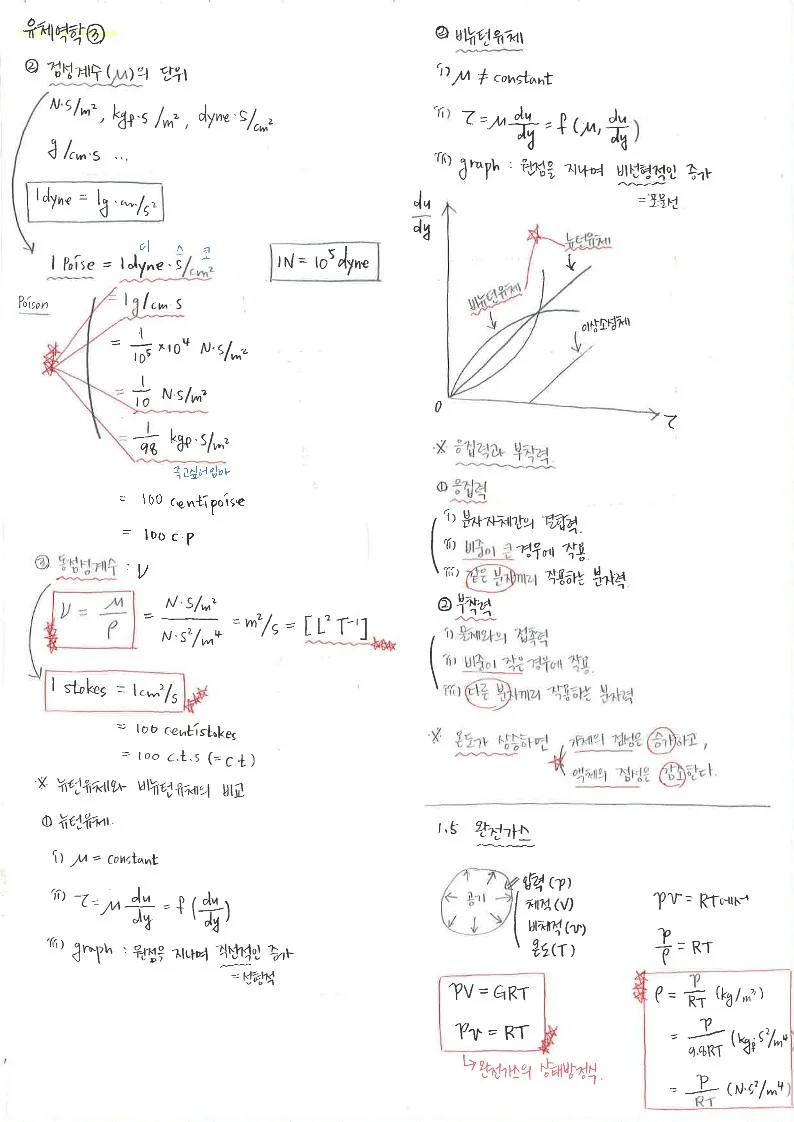 유체역학③
② 점성계수(μ)의 단위
N·S/m², kgf·s/m², dyne·s/cm²
g/cm·s ...
1dyne = 1g·cm/s²
디 스 코
1 Poise = 1dyne·s/cm²
1N = 10⁵dyne
Poison
= 1g/cm·s
= 1/10⁵ ×10⁴ N·S/m²
= 1/10 N·S/m²
= 1/98 kgf·S/m²
죽고싶어임마
= 100 centipoise
= 100 c.p
③ 동점성계수 : ν
ν = μ/ρ = (N·S/m²)/(N·S²/m⁴) = m²/s = [L² T⁻¹]
1 stokes = 1cm²/s
= 100 centistokes
= 100 c.t.s (= c.t)
※ 뉴턴유체와 비뉴턴유체의 비교
① 뉴턴유체.
i) μ = constant
ii) τ = μ du/dy = f(du/dy)
iii) graph : 원점을 지나며 직선적인 증가
= 선형적
② 비뉴턴유체
i) μ ≠ constant
ii) τ = μ du/dy = f(μ, du/dy)
iii) graph : 원점을 지나며 비선형적인 증가
= 포물선
du/dy
뉴턴유체
비뉴턴유체
이상소성체
0
τ
※ 응집력과 부착력.
① 응집력
i) 분자자체간의 결합력.
ii) 비중이 큰 경우에 작용.
iii) 같은 분자끼리 작용하는 분자력.
② 부착력
i) 물체와의 접촉력
ii) 비중이 작은 경우에 작용.
iii) 다른 분자끼리 작용하는 분자력
※ 온도가 상승하면 기체의 점성은 증가하고,
액체의 점성은 감소한다.
1.5 완전가스
공기
압력(p)
체적(V)
비체적(v)
온도(T)
pv = RT에서
p/ρ = RT
PV = GRT
Pv = RT
↳완전가스의 상태방정식.
ρ = p/RT (kg/m³)
= p/9.8RT (kgf·S²/m⁴)
= p/RT (N·S²/m⁴)